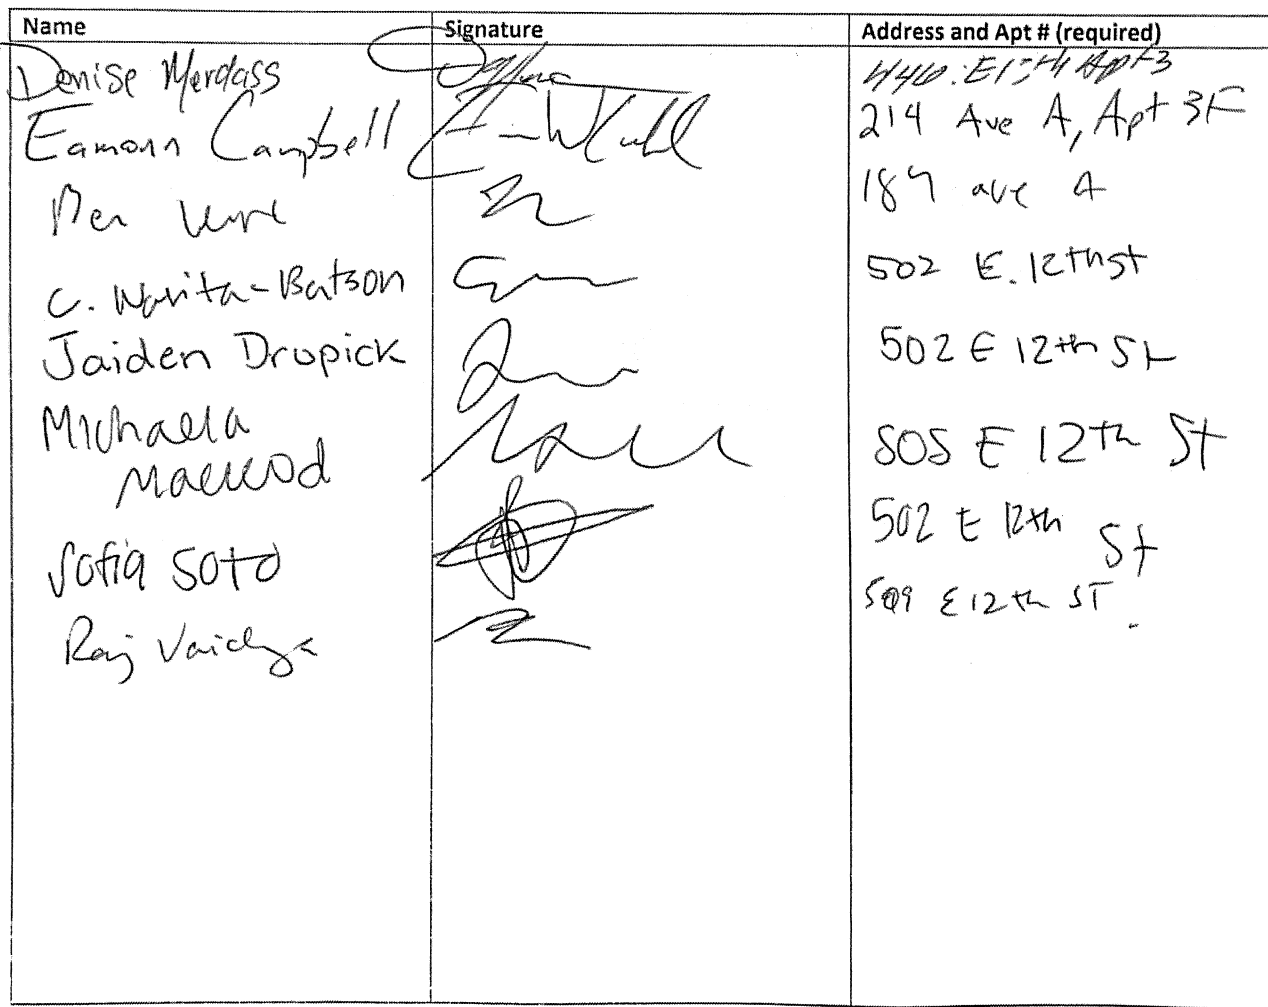 Name Signature Address and Apt # (required)
Denise Merdass
Eamonn Campbell 214 Ave A, Apt 3F
Ben 189 ave A
C. Narita-Batson 502 E. 12th st
Jaiden Dropick 502 E 12th St
Michaela 505 E 12th St
Macleod
Sofia Soto 502 E 12th St
Raj Vaidya 509 E 12th ST.